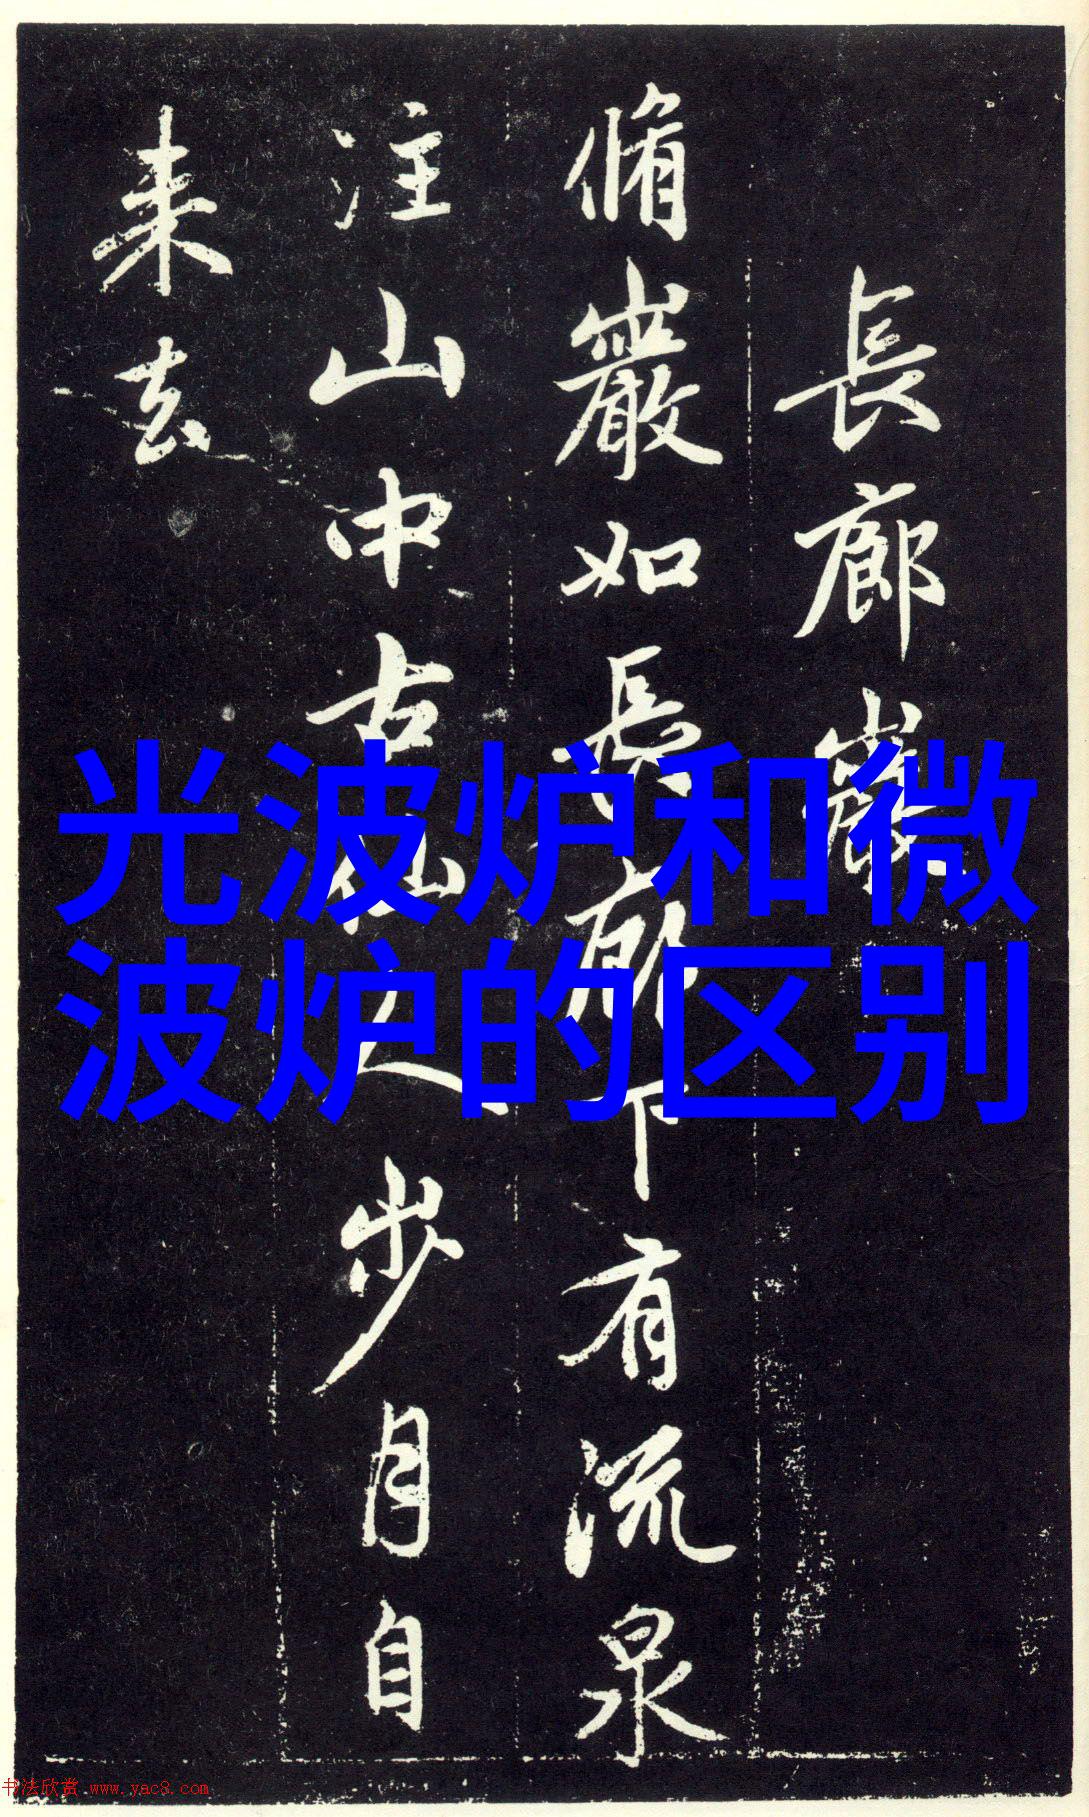 長廊巖
脩巖如長廊下有流泉
注山中古仙人步月自
来去
光波炉和微波炉的区别
书法欣赏 www.yac8.com